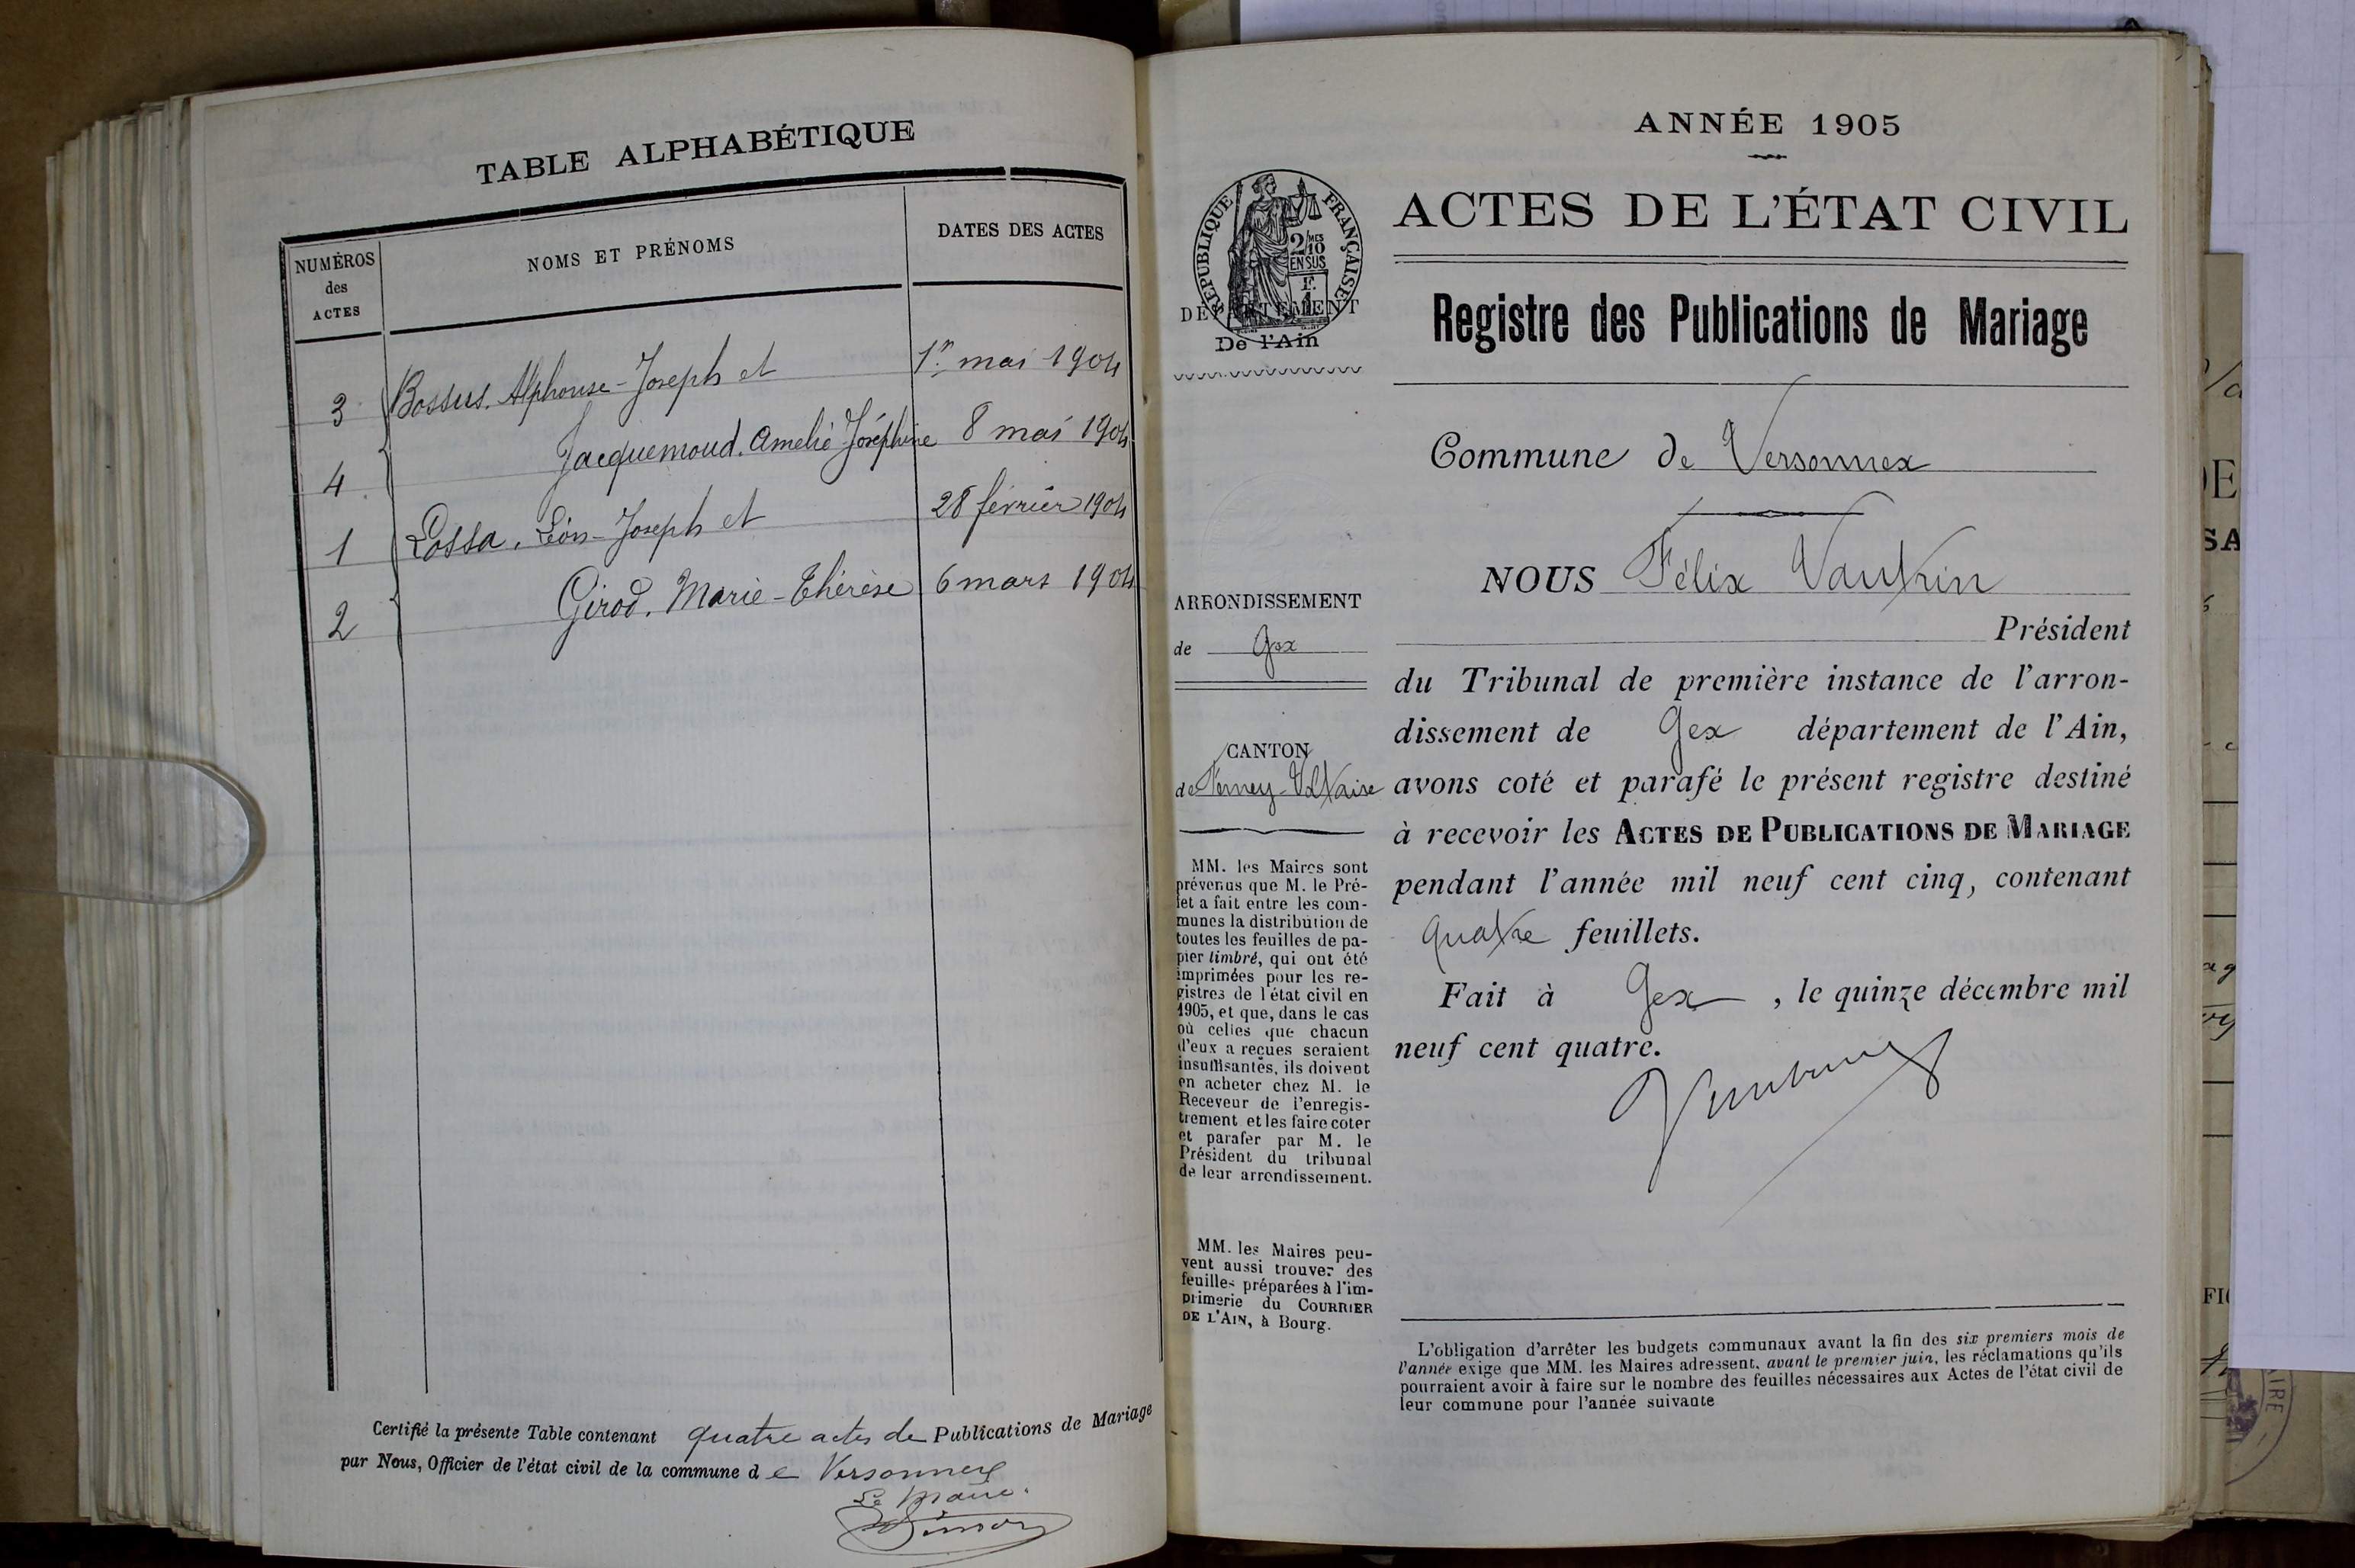 TABLE ALPHABÉTIQUE
NUMÉROS
des
ACTES
NOMS ET PRÉNOMS
DATES DES ACTES
3 Bossus. Alphonse-Joseph et 1er mai 1904
4 Jacquemoud. Amélie Joséphine 8 mai 1904
1 Lossa. Léon-Joseph et 28 février 1904
2 Girod. Marie-Thérèse 6 mars 1904
Certifié la présente Table contenant quatre actes de Publications de Mariage
par Nous, Officier de l'état civil de la commune de Versonnex
Le Maire.
ANNÉE 1905
RÉPUBLIQUE FRANÇAISE
2/10MES
EN SUS
1F.
DÉPARTEMENT
De l'Ain
ACTES DE L'ÉTAT CIVIL
Registre des Publications de Mariage
Commune de Versonnex
ARRONDISSEMENT
de Gex
CANTON
de Ferney-Voltaire
MM. les Maires sont
prévenus que M. le Pré-
fet a fait entre les com-
munes la distribution de
toutes les feuilles de pa-
pier timbré, qui ont été
imprimées pour les re-
gistres de l'état civil en
1905, et que, dans le cas
où celles que chacun
d'eux a reçues seraient
insuffisantes, ils doivent
en acheter chez M. le
Receveur de l'enregis-
trement et les faire coter
et parafer par M. le
Président du tribunal
de leur arrondissement.
MM. les Maires peu-
vent aussi trouver des
feuilles préparées à l'im-
primerie du COURRIER
DE L'AIN, à Bourg.
NOUS Félix Vautrin
Président
du Tribunal de première instance de l'arron-
dissement de Gex département de l'Ain,
avons coté et parafé le présent registre destiné
à recevoir les ACTES DE PUBLICATIONS DE MARIAGE
pendant l'année mil neuf cent cinq, contenant
quatre feuillets.
Fait à Gex, le quinze décembre mil
neuf cent quatre.
L'obligation d'arrêter les budgets communaux avant la fin des six premiers mois de
l'année exige que MM. les Maires adressent, avant le premier juin, les réclamations qu'ils
pourraient avoir à faire sur le nombre des feuilles nécessaires aux Actes de l'état civil de
leur commune pour l'année suivante